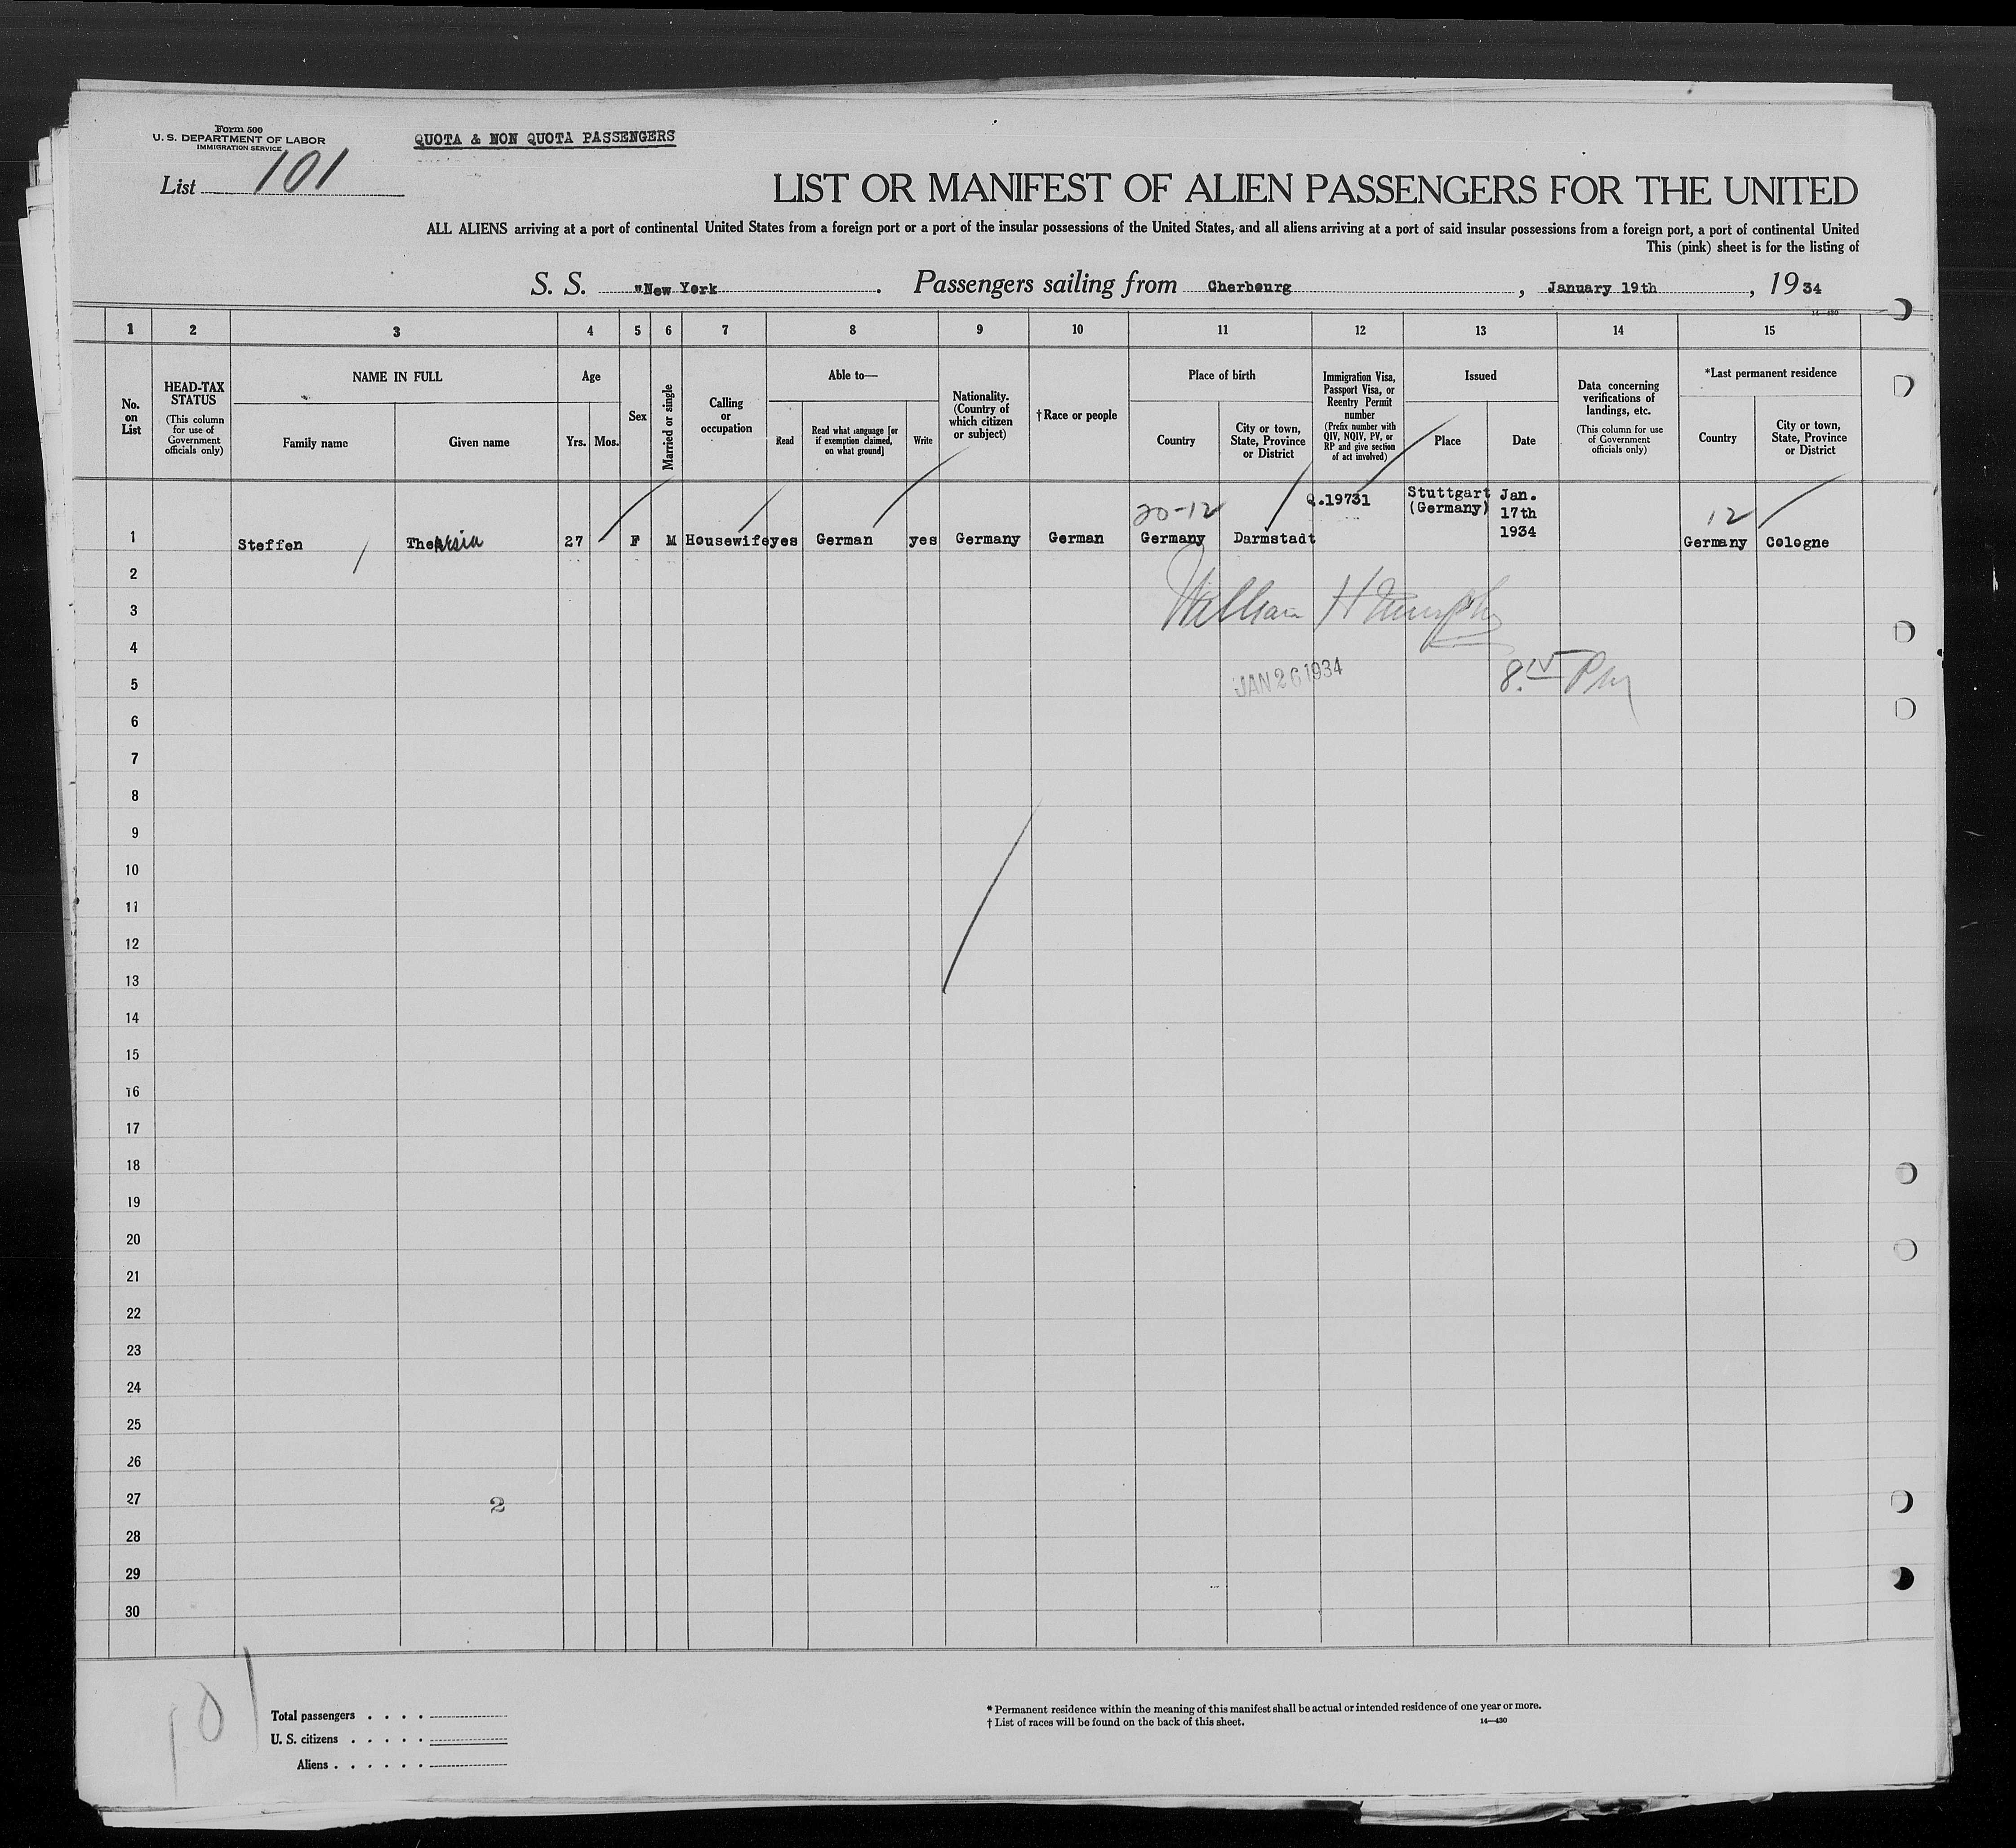 Form 500
U. S. DEPARTMENT OF LABOR
IMMIGRATION SERVICE
QUOTA & NON QUOTA PASSENGERS
List 101
LIST OR MANIFEST OF ALIEN PASSENGERS FOR THE UNITED
ALL ALIENS arriving at a port of continental United States from a foreign port or a port of the insular possessions of the United States, and all aliens arriving at a port of said insular possessions from a foreign port, a port of continental United
This (pink) sheet is for the listing of
S. S. "New York . Passengers sailing from Cherbourg , January 19th , 19 34
14—430
1 2 3 4 5 6 7 8 9 10 11 12 13 14 15
No. on List
HEAD-TAX STATUS
(This column for use of Government officials only)
NAME IN FULL
Family name Given name
Age
Yrs. Mos.
Sex
Married or single
Calling or occupation
Able to—
Read
Read what language [or if exemption claimed, on what ground]
Write
Nationality. (Country of which citizen or subject)
†Race or people
Place of birth
Country
City or town, State, Province or District
Immigration Visa, Passport Visa, or Reentry Permit number
(Prefix number with QIV, NQIV, PV, or RP and give section of act involved)
Issued
Place Date
Data concerning verifications of landings, etc.
(This column for use of Government officials only)
*Last permanent residence
Country
City or town, State, Province or District
20-12 Q.19731 Stuttgart (Germany) Jan. 17th 1934 12
1 Steffen Theresia 27 F M Housewife yes German yes Germany German Germany Darmstadt Germany Cologne
2
3 William H Murphy
4
5 JAN 26 1934 8.15 PM
6
7
8
9
10
11
12
13
14
15
16
17
18
19
20
21
22
23
24
25
26
27 2
28
29
30
101
Total passengers . . . .
U. S. citizens . . . . .
Aliens . . . . . .
* Permanent residence within the meaning of this manifest shall be actual or intended residence of one year or more.
† List of races will be found on the back of this sheet.
14—430